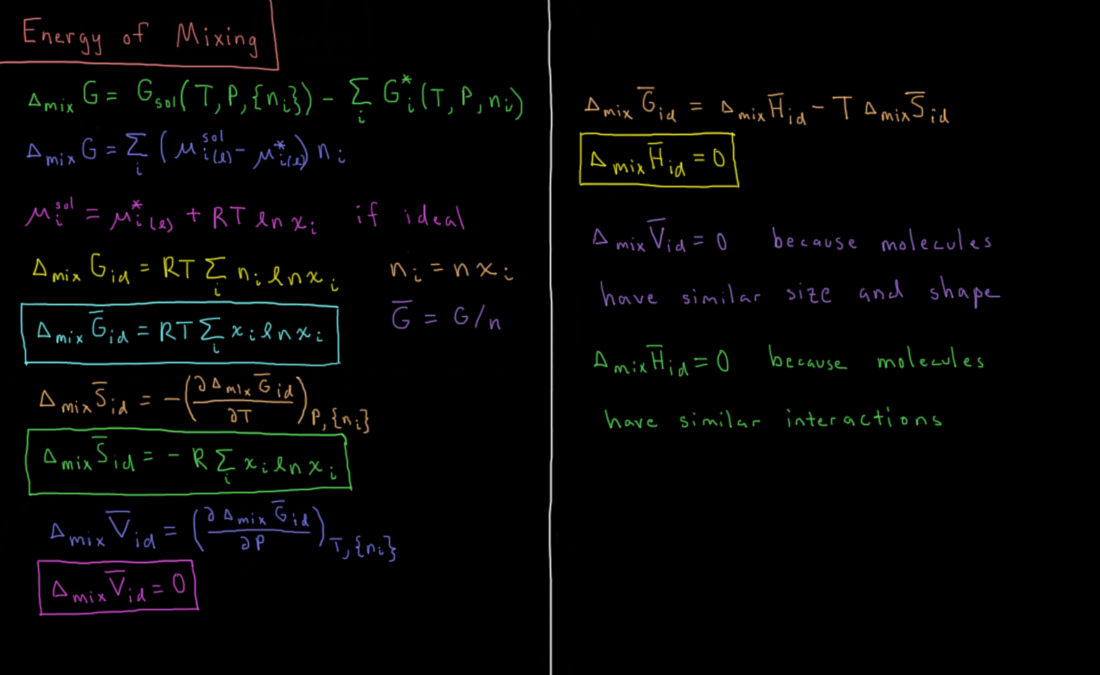 Energy of Mixing
Δ_mix G = G_sol(T, P, {n_i}) - Σ_i G_i^*(T, P, n_i)
Δ_mix G = Σ_i (μ_i(ℓ)^sol - μ_i(ℓ)^*) n_i
μ_i^sol = μ_i(ℓ)^* + RT ln x_i if ideal
Δ_mix G_id = RT Σ_i n_i ln x_i
n_i = n x_i
G̅ = G/n
Δ_mix G̅_id = RT Σ_i x_i ln x_i
Δ_mix S̅_id = -(∂Δ_mix G̅_id / ∂T)_P,{n_i}
Δ_mix S̅_id = - R Σ_i x_i ln x_i
Δ_mix V̅_id = (∂Δ_mix G̅_id / ∂P)_T,{n_i}
Δ_mix V̅_id = 0
Δ_mix G̅_id = Δ_mix H̅_id - T Δ_mix S̅_id
Δ_mix H̅_id = 0
Δ_mix V̅_id = 0 because molecules
have similar size and shape
Δ_mix H̅_id = 0 because molecules
have similar interactions